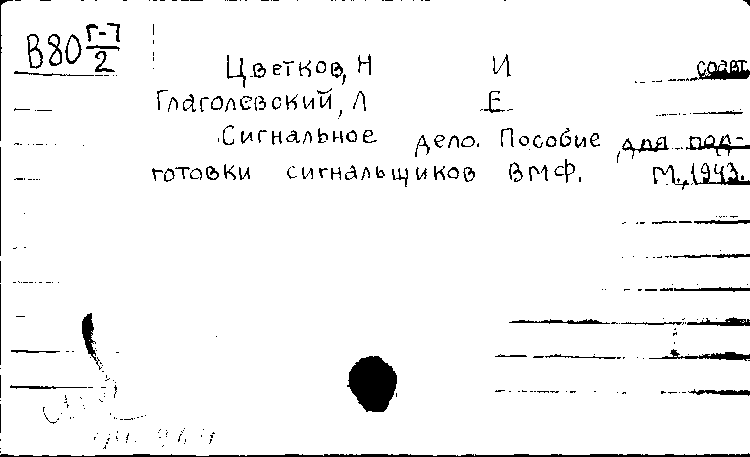 В80 Г-7/2
Цветков, Н И соавт.
Глаголевский, Л Е
Сигнальное дело. Пособие для под-
готовки сигнальщиков ВМФ. М., 1943.